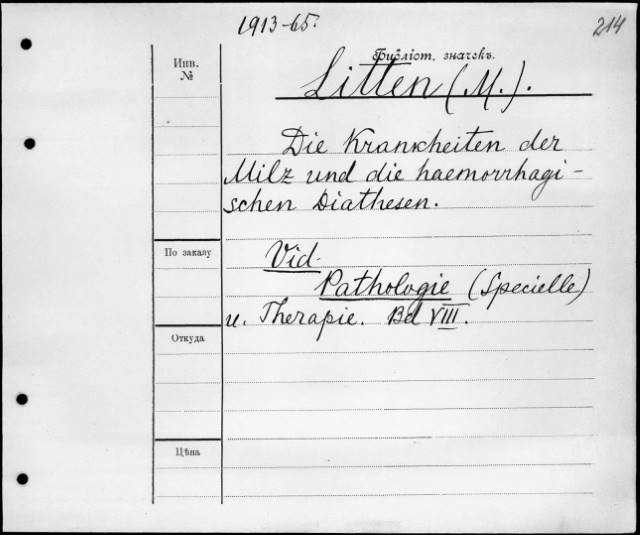 1913-65.
214
Инв.
№
Библіот. значекъ.
Litten (M.).
Die Krankheiten der
Milz und die haemorrhagi-
schen Diathesen.
По заказу
Vid.
Pathologie (Specielle)
u. Therapie. Bd VIII.
Откуда
Цѣна